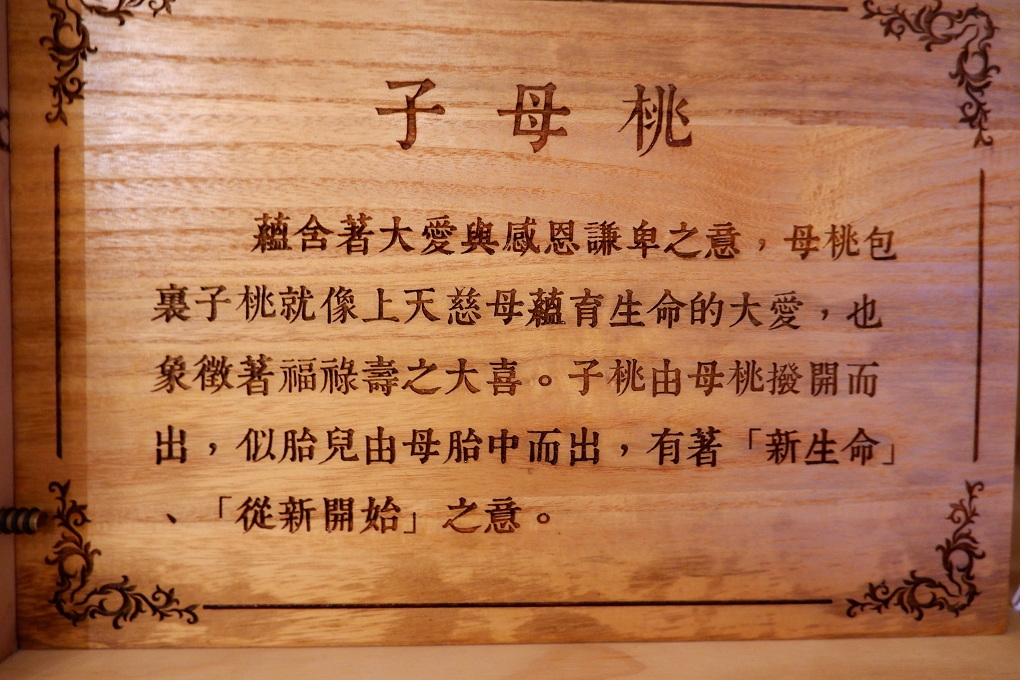 子母桃
蘊含著大愛與感恩謙卑之意，母桃包
裹子桃就像上天慈母蘊育生命的大愛，也
象徵著福祿壽之大喜。子桃由母桃撥開而
出，似胎兒由母胎中而出，有著「新生命」
、「從新開始」之意。